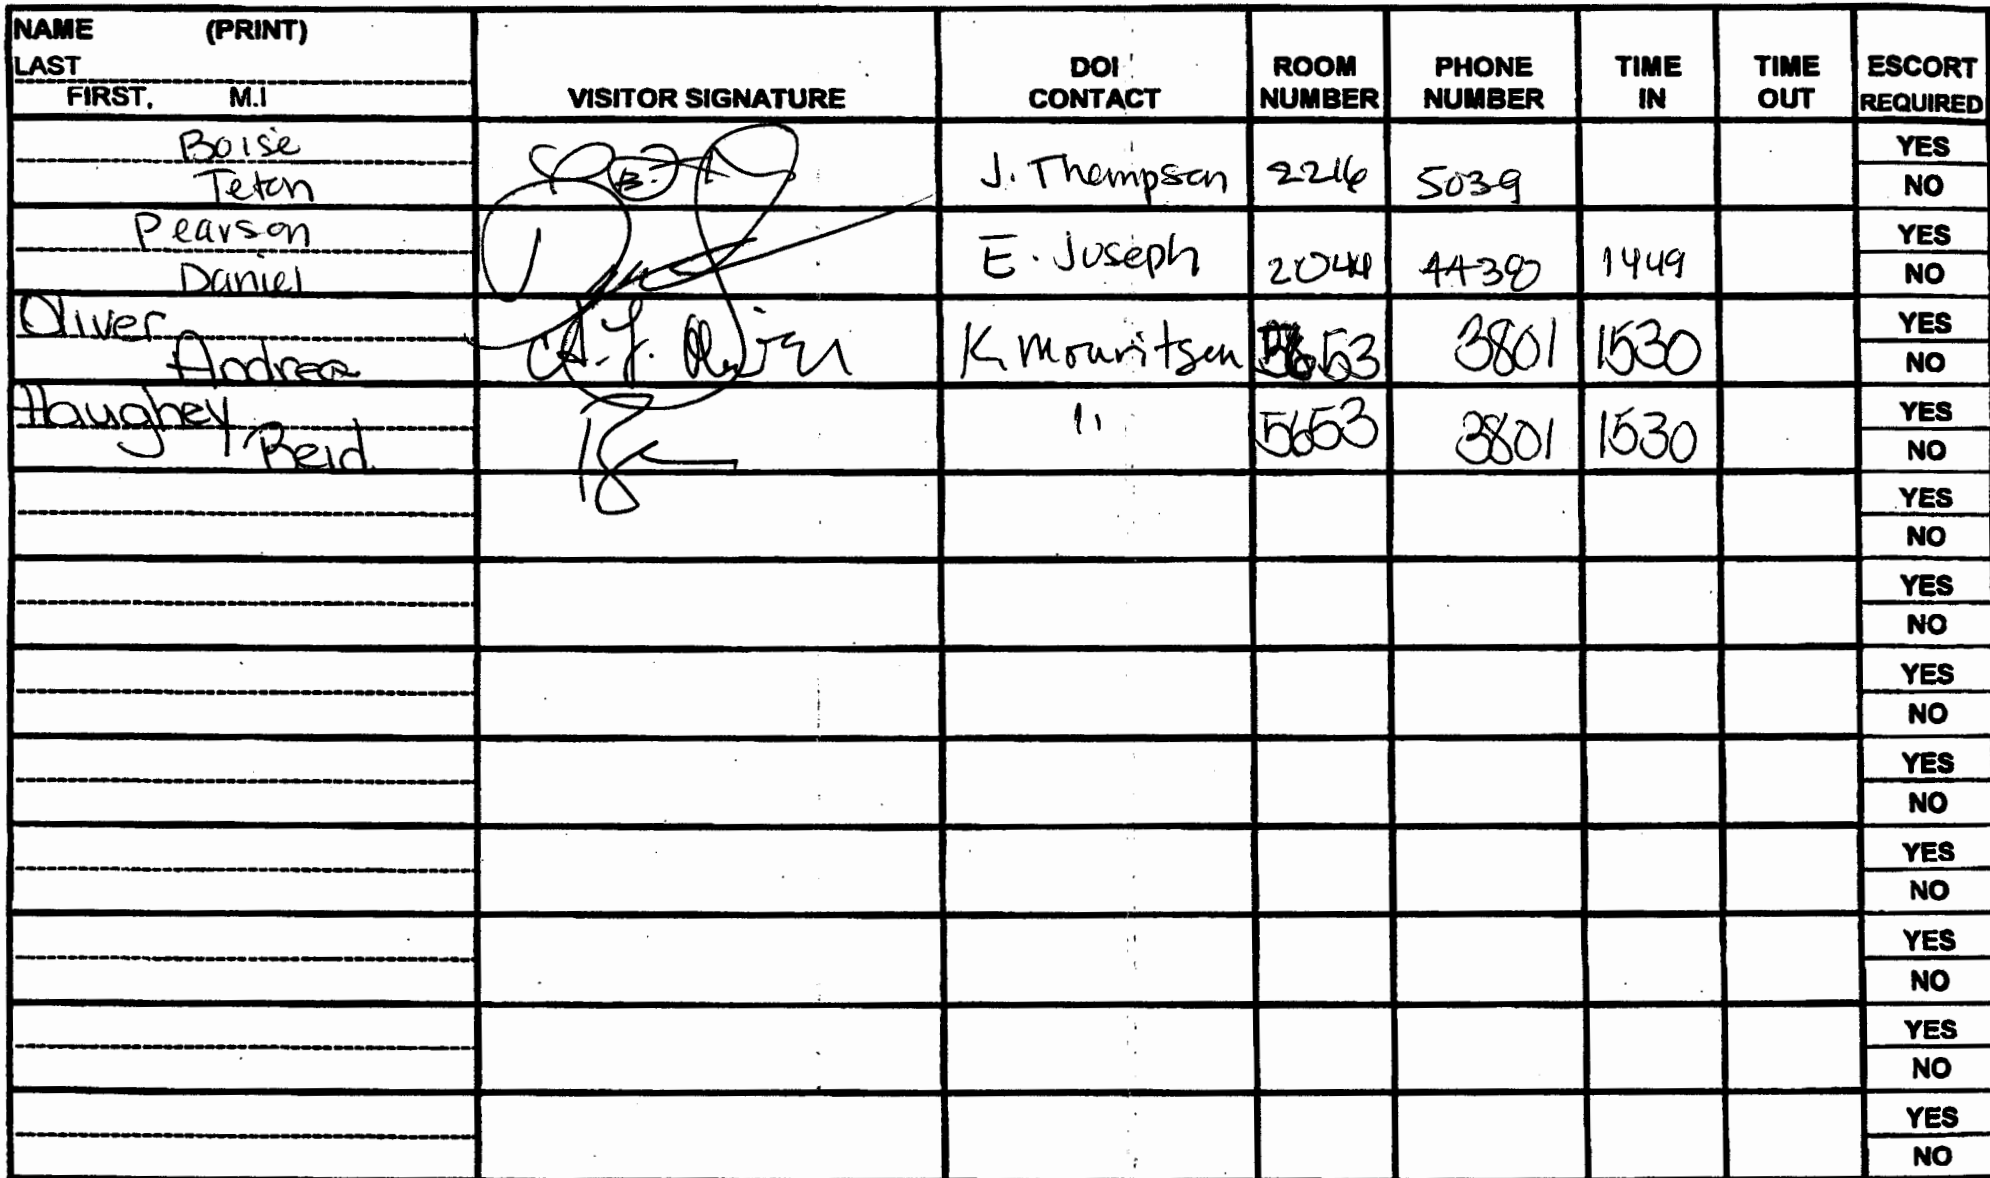 NAME (PRINT)
LAST
FIRST, M.I
VISITOR SIGNATURE
DOI CONTACT
ROOM NUMBER
PHONE NUMBER
TIME IN
TIME OUT
ESCORT REQUIRED
Boise
Teton
J. Thompson 2216 5039
YES
NO
Pearson
Daniel
E. Joseph 2044 1449
YES
NO
Oliver
Andrea
K Mouritsen 5653 3801 1530
YES
NO
Haughey
Reid
" 5653 3801 1530
YES
NO
YES
NO
YES
NO
YES
NO
YES
NO
YES
NO
YES
NO
YES
NO
YES
NO